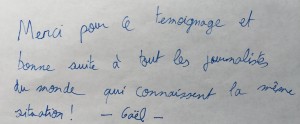 Merci pour ce temoignage et
bonne suite à tout les journalistes
du monde qui connaissent la même
situation ! - Gaël -